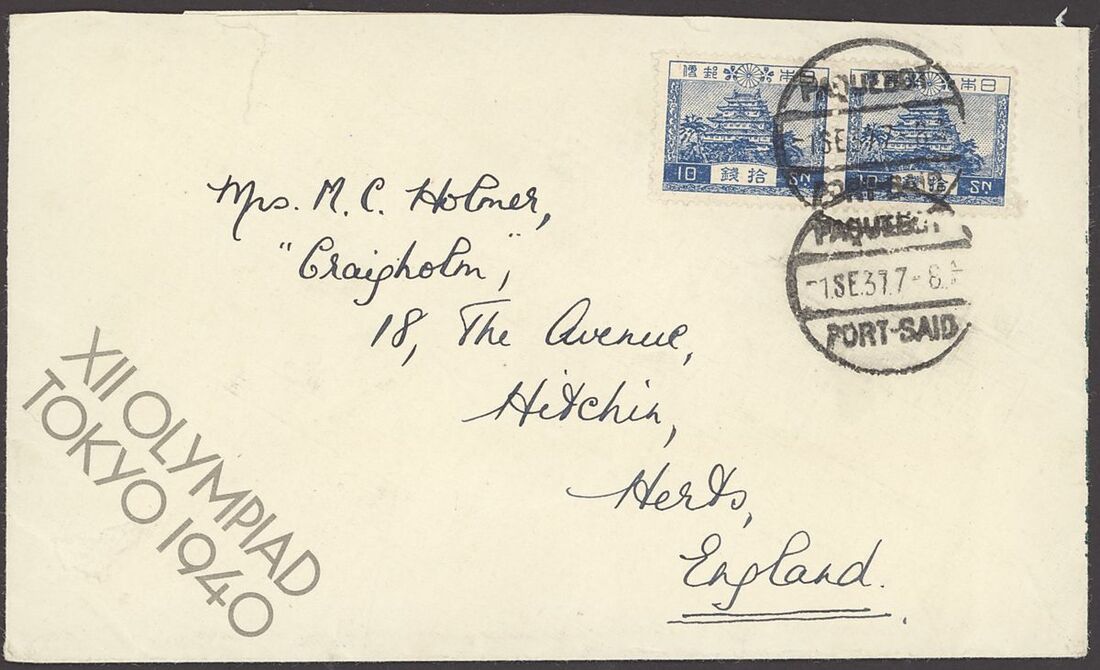 日本郵便
10 拾錢 SN
日本
10 拾 SN
PAQUEBOT
-1SE.37.7-
PORT-SAID
PAQUEBOT
-1SE.37.7-8
PORT-SAID
Mrs. M. C. Holmer,
"Craigholm",
18, The Avenue,
Hitchin,
Herts,
England.
XII OLYMPIAD
TOKYO 1940